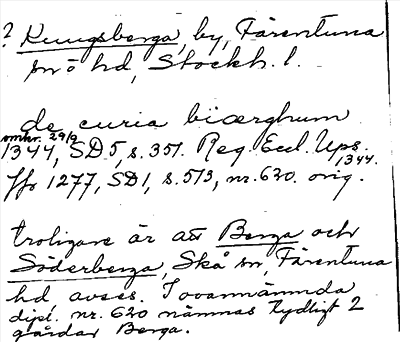 ? Kungsberga, by, Färentuna
sn o hd, Stockh. l.
de curia biærghum
omkr. 29/9
1344, SD 5, s. 351. Reg. Eccl. Ups.
1344.
Jfr 1277, SD 1, s. 513, nr. 620. orig.
troligare är att Berga och
Söderberga, Skå sn, Färentuna
hd avses. I ovannämnda
dipl. nr. 620 nämnas tydligt 2
gårdar Berga.